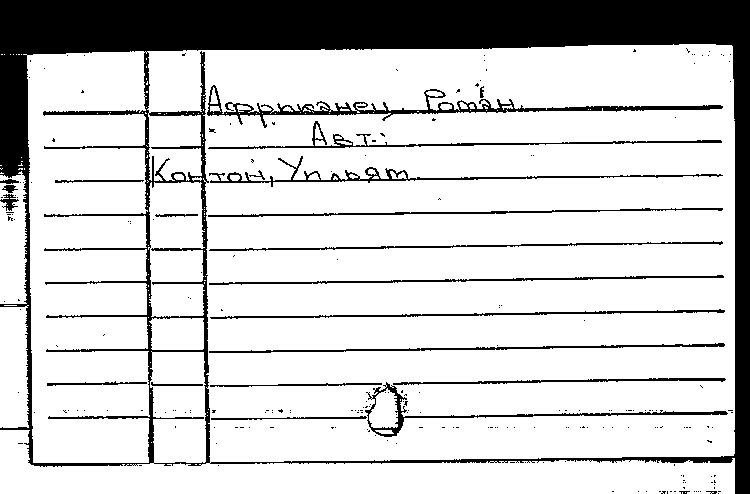 Африканец. Роман.
Авт.:
Контон, Уильям